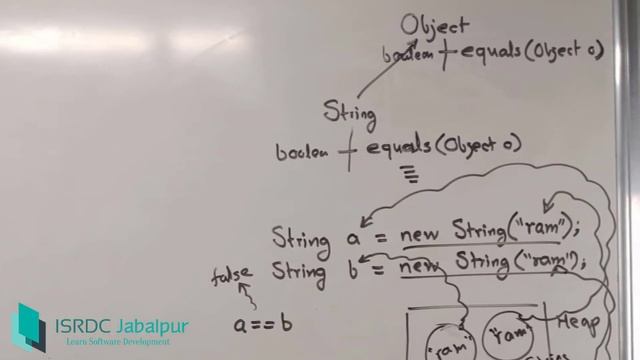 Object
boolean + equals(Object o)
String
boolean + equals(Object o)
String a = new String("ram");
String b = new String("ram");
false
a==b
"ram" "ram" Heap
ISRDC Jabalpur
Learn Software Development